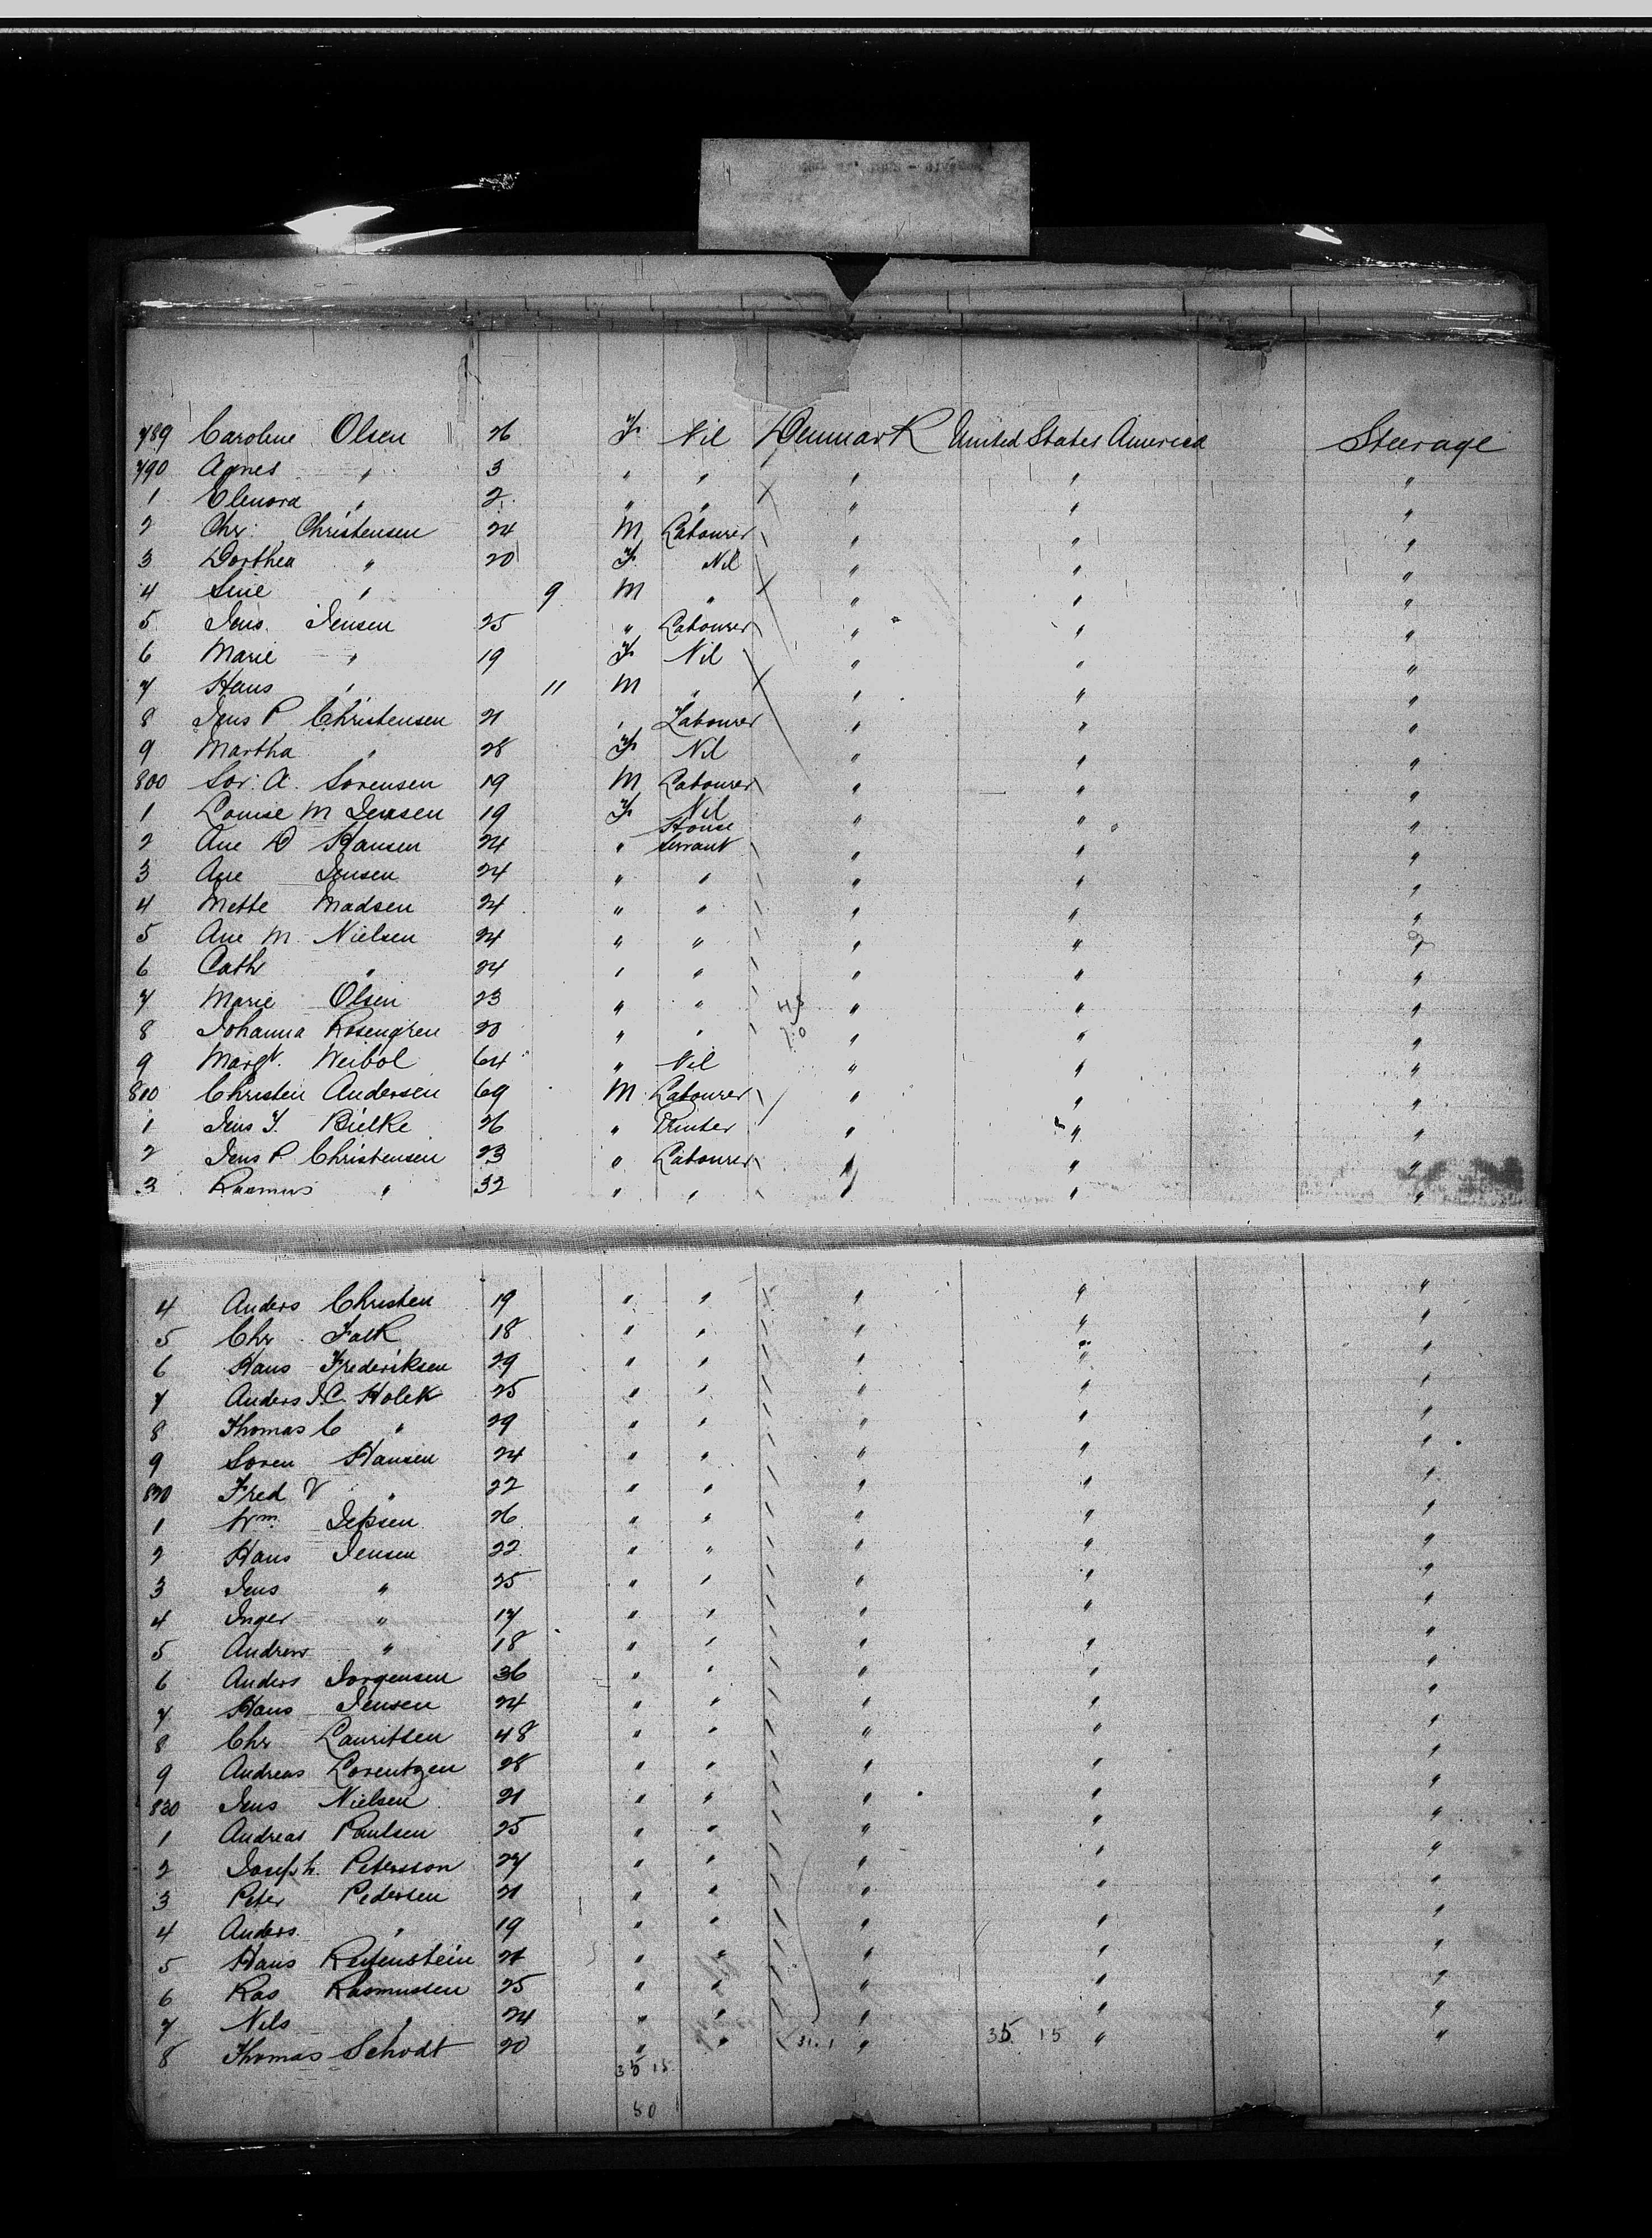 789 Caroline Olsen 26 F Nil Denmark United States America Steerage
790 Agnes " 3 " " " " "
1 Elenora " 2 " " " " "
2 Chr: Christensen 24 M Labourer " " "
3 Dorthea " 20 F Nil " " "
4 Sine " 9 M " " " "
5 Jens Jensen 25 " Labourer " " "
6 Marie " 19 F Nil " " "
7 Hans " 11 M " " " "
8 Jens P Christensen 21 " Labourer " " "
9 Martha " 28 F Nil " " "
800 Sor: A. Sorensen 19 M Labourer " " "
1 Louise M Jensen 19 F Nil " " "
2 Ane D Hansen 24 " House Servant " " "
3 Ane Jensen 24 " " " " "
4 Mette Madsen 24 " " " " "
5 Ane M. Nielsen 24 " " " " "
6 Cath " 24 " " " " "
7 Marie Olsen 23 " " " " "
8 Johanna Rosengren 20 " " " " "
9 Margt. Weibol 64 " Nil " " "
810 Christen Andersen 69 M Labourer " " "
1 Jens J. Bielke 26 " Printer " " "
2 Jens P. Christensen 23 " Labourer " " "
3 Rasmus " 32 " " " " "
4 Anders Christen 19 " " " " "
5 Chr Falk 18 " " " " "
6 Hans Frederiksen 29 " " " " "
7 Anders J.C. Holek 25 " " " " "
8 Thomas C " 29 " " " " "
9 Soren Hansen 24 " " " " "
820 Fred V " 22 " " " " "
1 Wm. Jepsen 26 " " " " "
2 Hans Jensen 22 " " " " "
3 Jens " 25 " " " " "
4 Inger " 17 " " " " "
5 Andrew " 18 " " " " "
6 Anders Jorgensen 36 " " " " "
7 Hans Jensen 24 " " " " "
8 Chr Lauritsen 48 " " " " "
9 Andreas Lorentzen 28 " " " " "
830 Jens Nielsen 21 " " " " "
1 Andreas Paulsen 25 " " " " "
2 Joseph. Petersson 27 " " " " "
3 Peter Pedersen 21 " " " " "
4 Anders " 19 " " " " "
5 Hans Reitenstein 21 " " " " "
6 Ras Rasmussen 25 " " " " "
7 Nils " 24 " " " " "
8 Thomas Schodt 20 " " " 35 15 " "
35 15
50